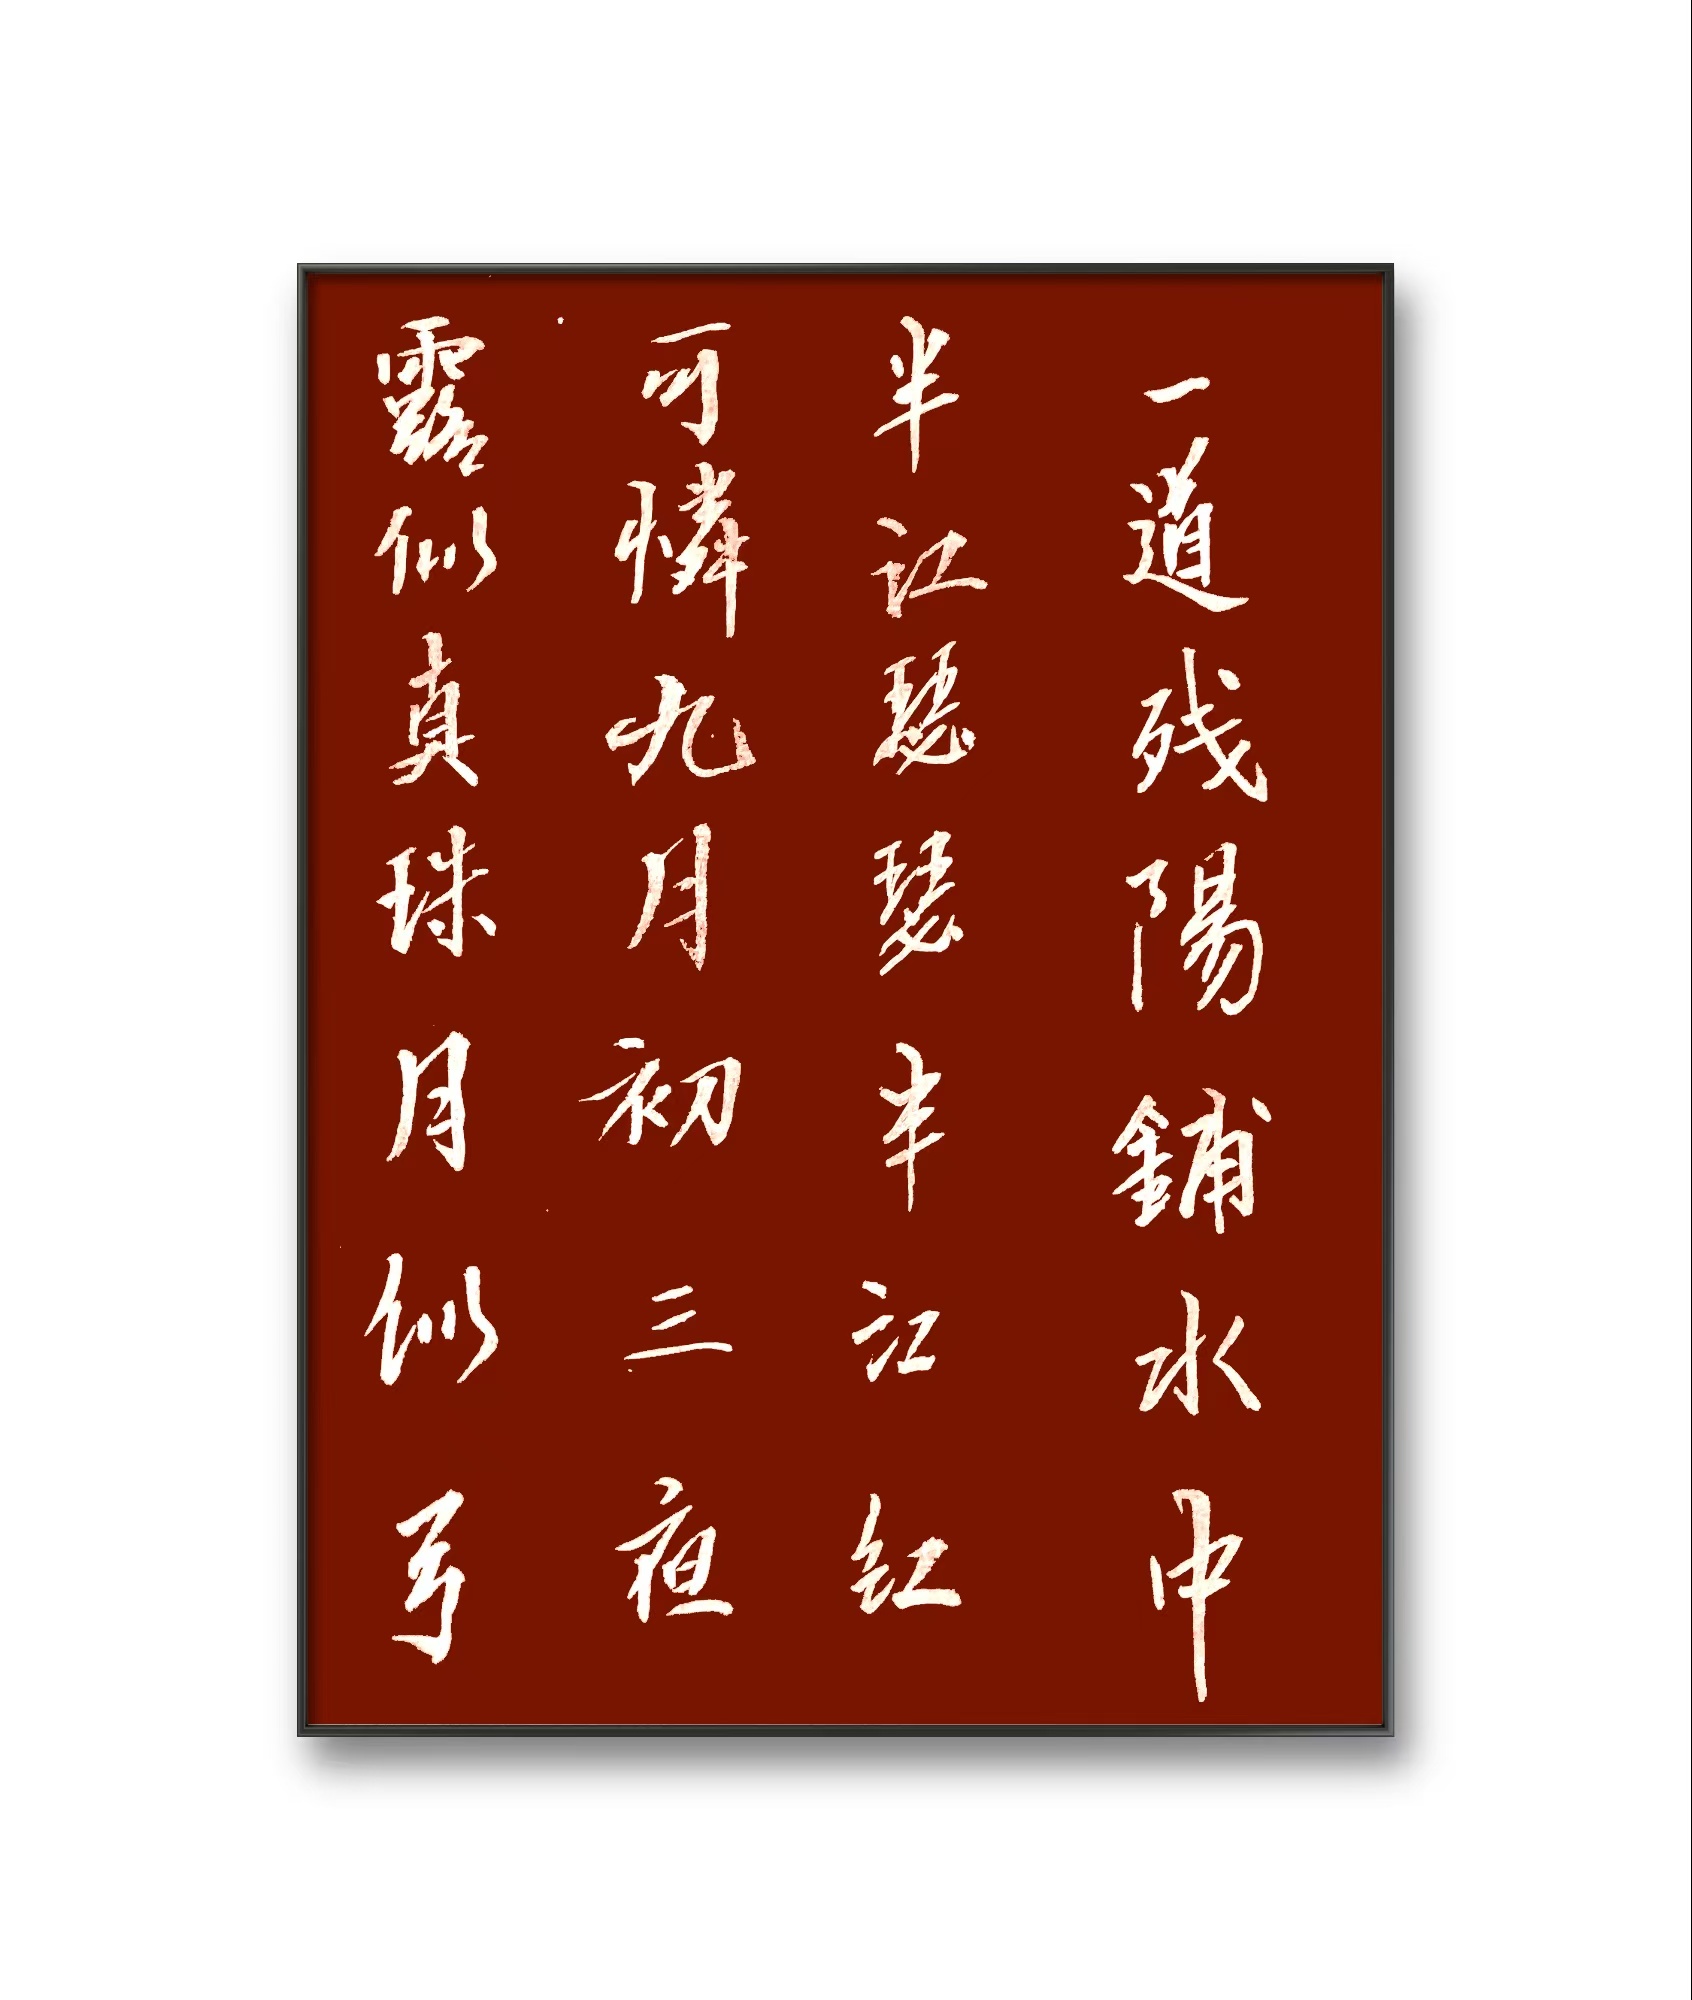 一道残陽鋪水中
半江瑟瑟半江红
可憐九月初三夜
露似真珠月似弓